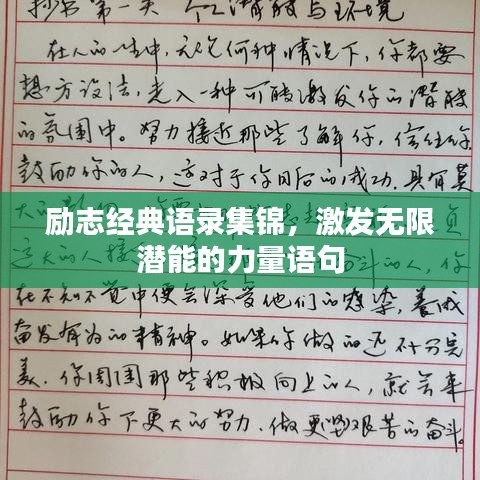 抄书第一天 个人潜能与环境
在人的一生中,无论何种情况下,你都要
想方设法,走入一种可能激发你的潜能
的氛围中。努力接近那些了解你,信任你
鼓励你的人,这对于你日后的成功,具有莫
大的
励志经典语录集锦，激发无限
潜能的力量语句
在不知不觉中便会深受他们的感染,养成
奋发有为的精神。如果你做的还不十分完
美,你周围那些积极向上的人,就会来
鼓励你下更大的努力,做更坚艰苦的奋斗。